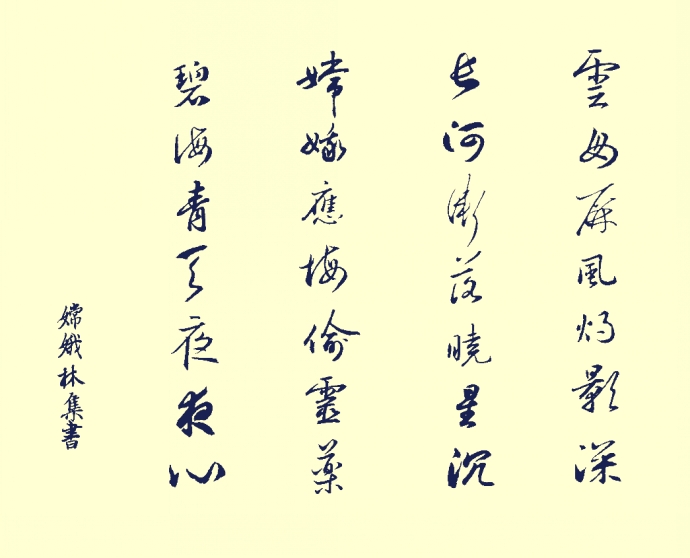 雲母屏風燭影深
長河漸落曉星沉
嫦娥應悔偷靈藥
碧海青天夜夜心
嫦娥林集書